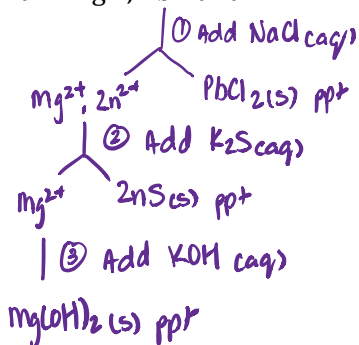 ① Add NaCl(aq)
Mg²⁺, Zn²⁺
PbCl₂(s) ppt
② Add K₂S(aq)
Mg²⁺
ZnS(s) ppt
③ Add KOH (aq)
Mg(OH)₂ (s) ppt